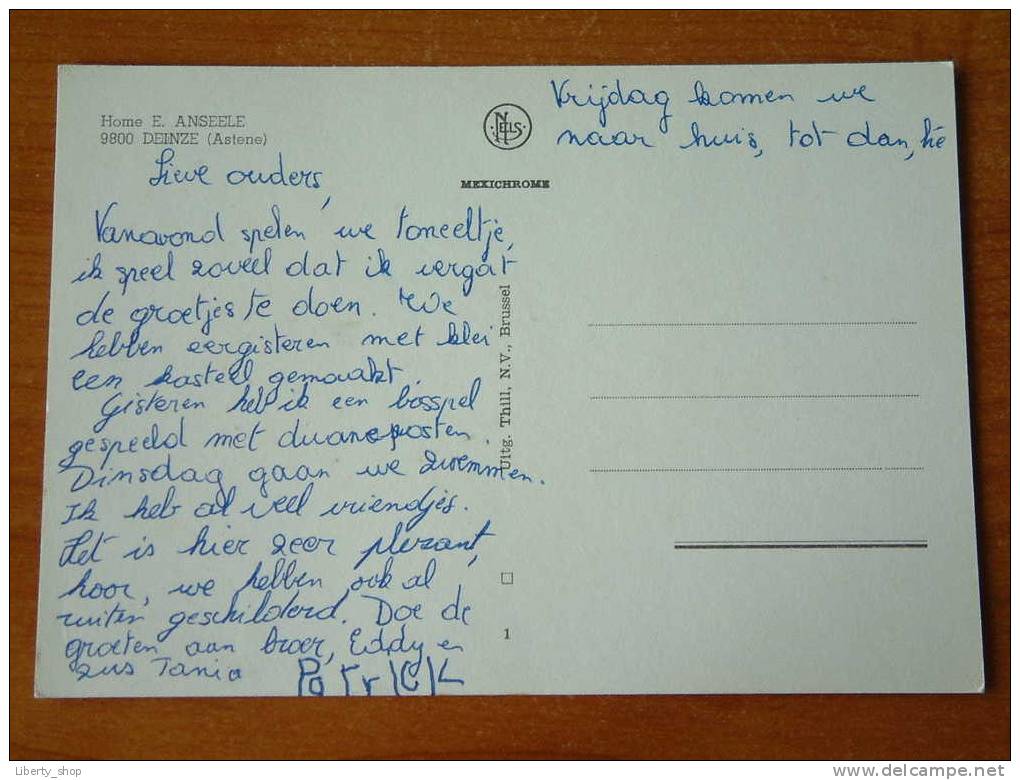 Home E. ANSEELE
9800 DEINZE (Astene)
NELS
MEXICHROME
Vrijdag komen we
naar huis, tot dan, hé
Lieve ouders,
Vanavond spelen we toneeltje,
ik speel zoveel dat ik vergat
de groetjes te doen. We
hebben eergisteren met klei
een kasteel gemaakt.
Gisteren heb ik een bosspel
gespeeld met duaneposten.
Dinsdag gaan we zwemmen.
Ik heb al veel vriendjes.
Het is hier zeer plezant,
hoor, we hebben ook al
ruiten geschilderd. Doe de
groeten aan broer, Eddy en
zus Tania
Patrick
Uitg. Thill, N.V., Brussel
1
Liberty_shop
delcampe.net